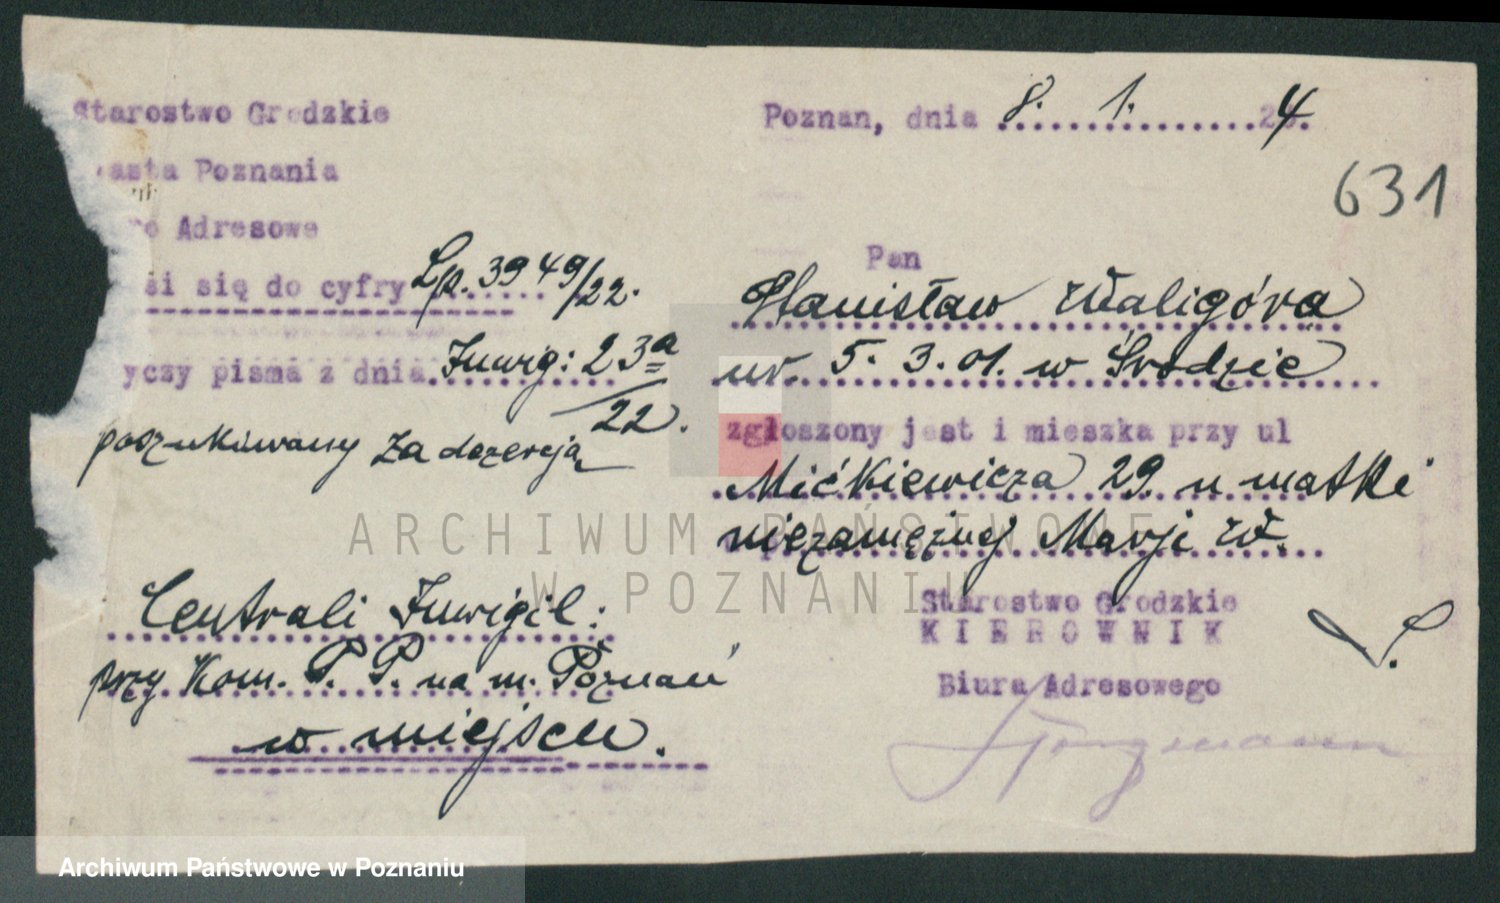 Starostwo Grodzkie
asta Poznania
ro Adresowe
si się do cyfry Lp. 3949/22.
yczy pisma z dnia Inwig: 23a/22.
poszukiwany za dezercją
Centrali Inwigil:
przy Kom. P. P. na m. Poznań
w miejscu.
Poznan, dnia 8. 1. 24.
631
Pan
Stanisław Waligóra
ur. 5. 3. 01. w Środzie
zgłoszony jest i mieszka przy ul
Mićkiewicza 29. u matki
niezamężnej Marji W.
Starostwo Grodzkie
KIEROWNIK
Biura Adresowego
ARCHIWUM PAŃSTWOWE
W POZNANIU
Archiwum Państwowe w Poznaniu